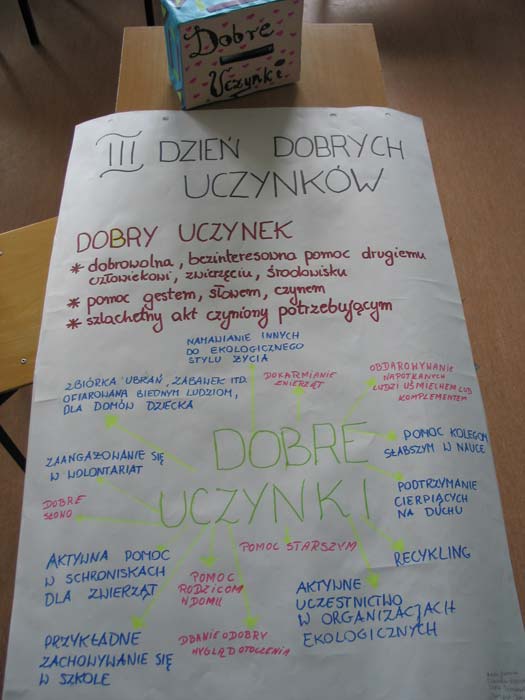 Dobre
Uczynki
III DZIEŃ DOBRYCH
UCZYNKÓW
DOBRY UCZYNEK
* dobrowolna, bezinteresowna pomoc drugiemu
człowiekowi, zwierzęciu, środowisku
* pomoc gestem, słowem, czynem
* szlachetny akt czyniony potrzebującym
NAMAWIANIE INNYCH
DO EKOLOGICZNEGO
STYLU ŻYCIA
ZBIÓRKA UBRAŃ, ZABAWEK ITD.
OFIAROWANA BIEDNYM LUDZIOM,
DLA DOMÓW DZIECKA
DOKARMIANIE
ZWIERZĄT
OBDAROWYWANIE
NAPOTKANYCH
LUDZI UŚMIECHEM LUB
KOMPLEMENTEM
ZAANGAŻOWANIE SIĘ
W WOLONTARIAT
DOBRE
UCZYNKI
POMOC KOLEGOM
SŁABSZYM W NAUCE
DOBRE
SŁOWO
PODTRZYMANIE
CIERPIĄCYCH
NA DUCHU
AKTYWNA POMOC
W SCHRONISKACH
DLA ZWIERZĄT
POMOC
RODZICOM
W DOMU
POMOC STARSZYM
RECYKLING
AKTYWNE
UCZESTNICTWO
W ORGANIZACJACH
EKOLOGICZNYCH
PRZYKŁADNE
ZACHOWYWANIE SIĘ
W SZKOLE
DBANIE O DOBRY
WYGLĄD OTOCZENIA